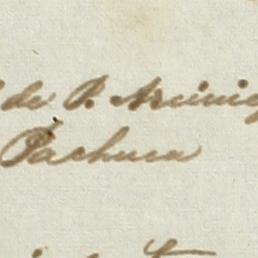 de P. Arcinieg
Pachuca